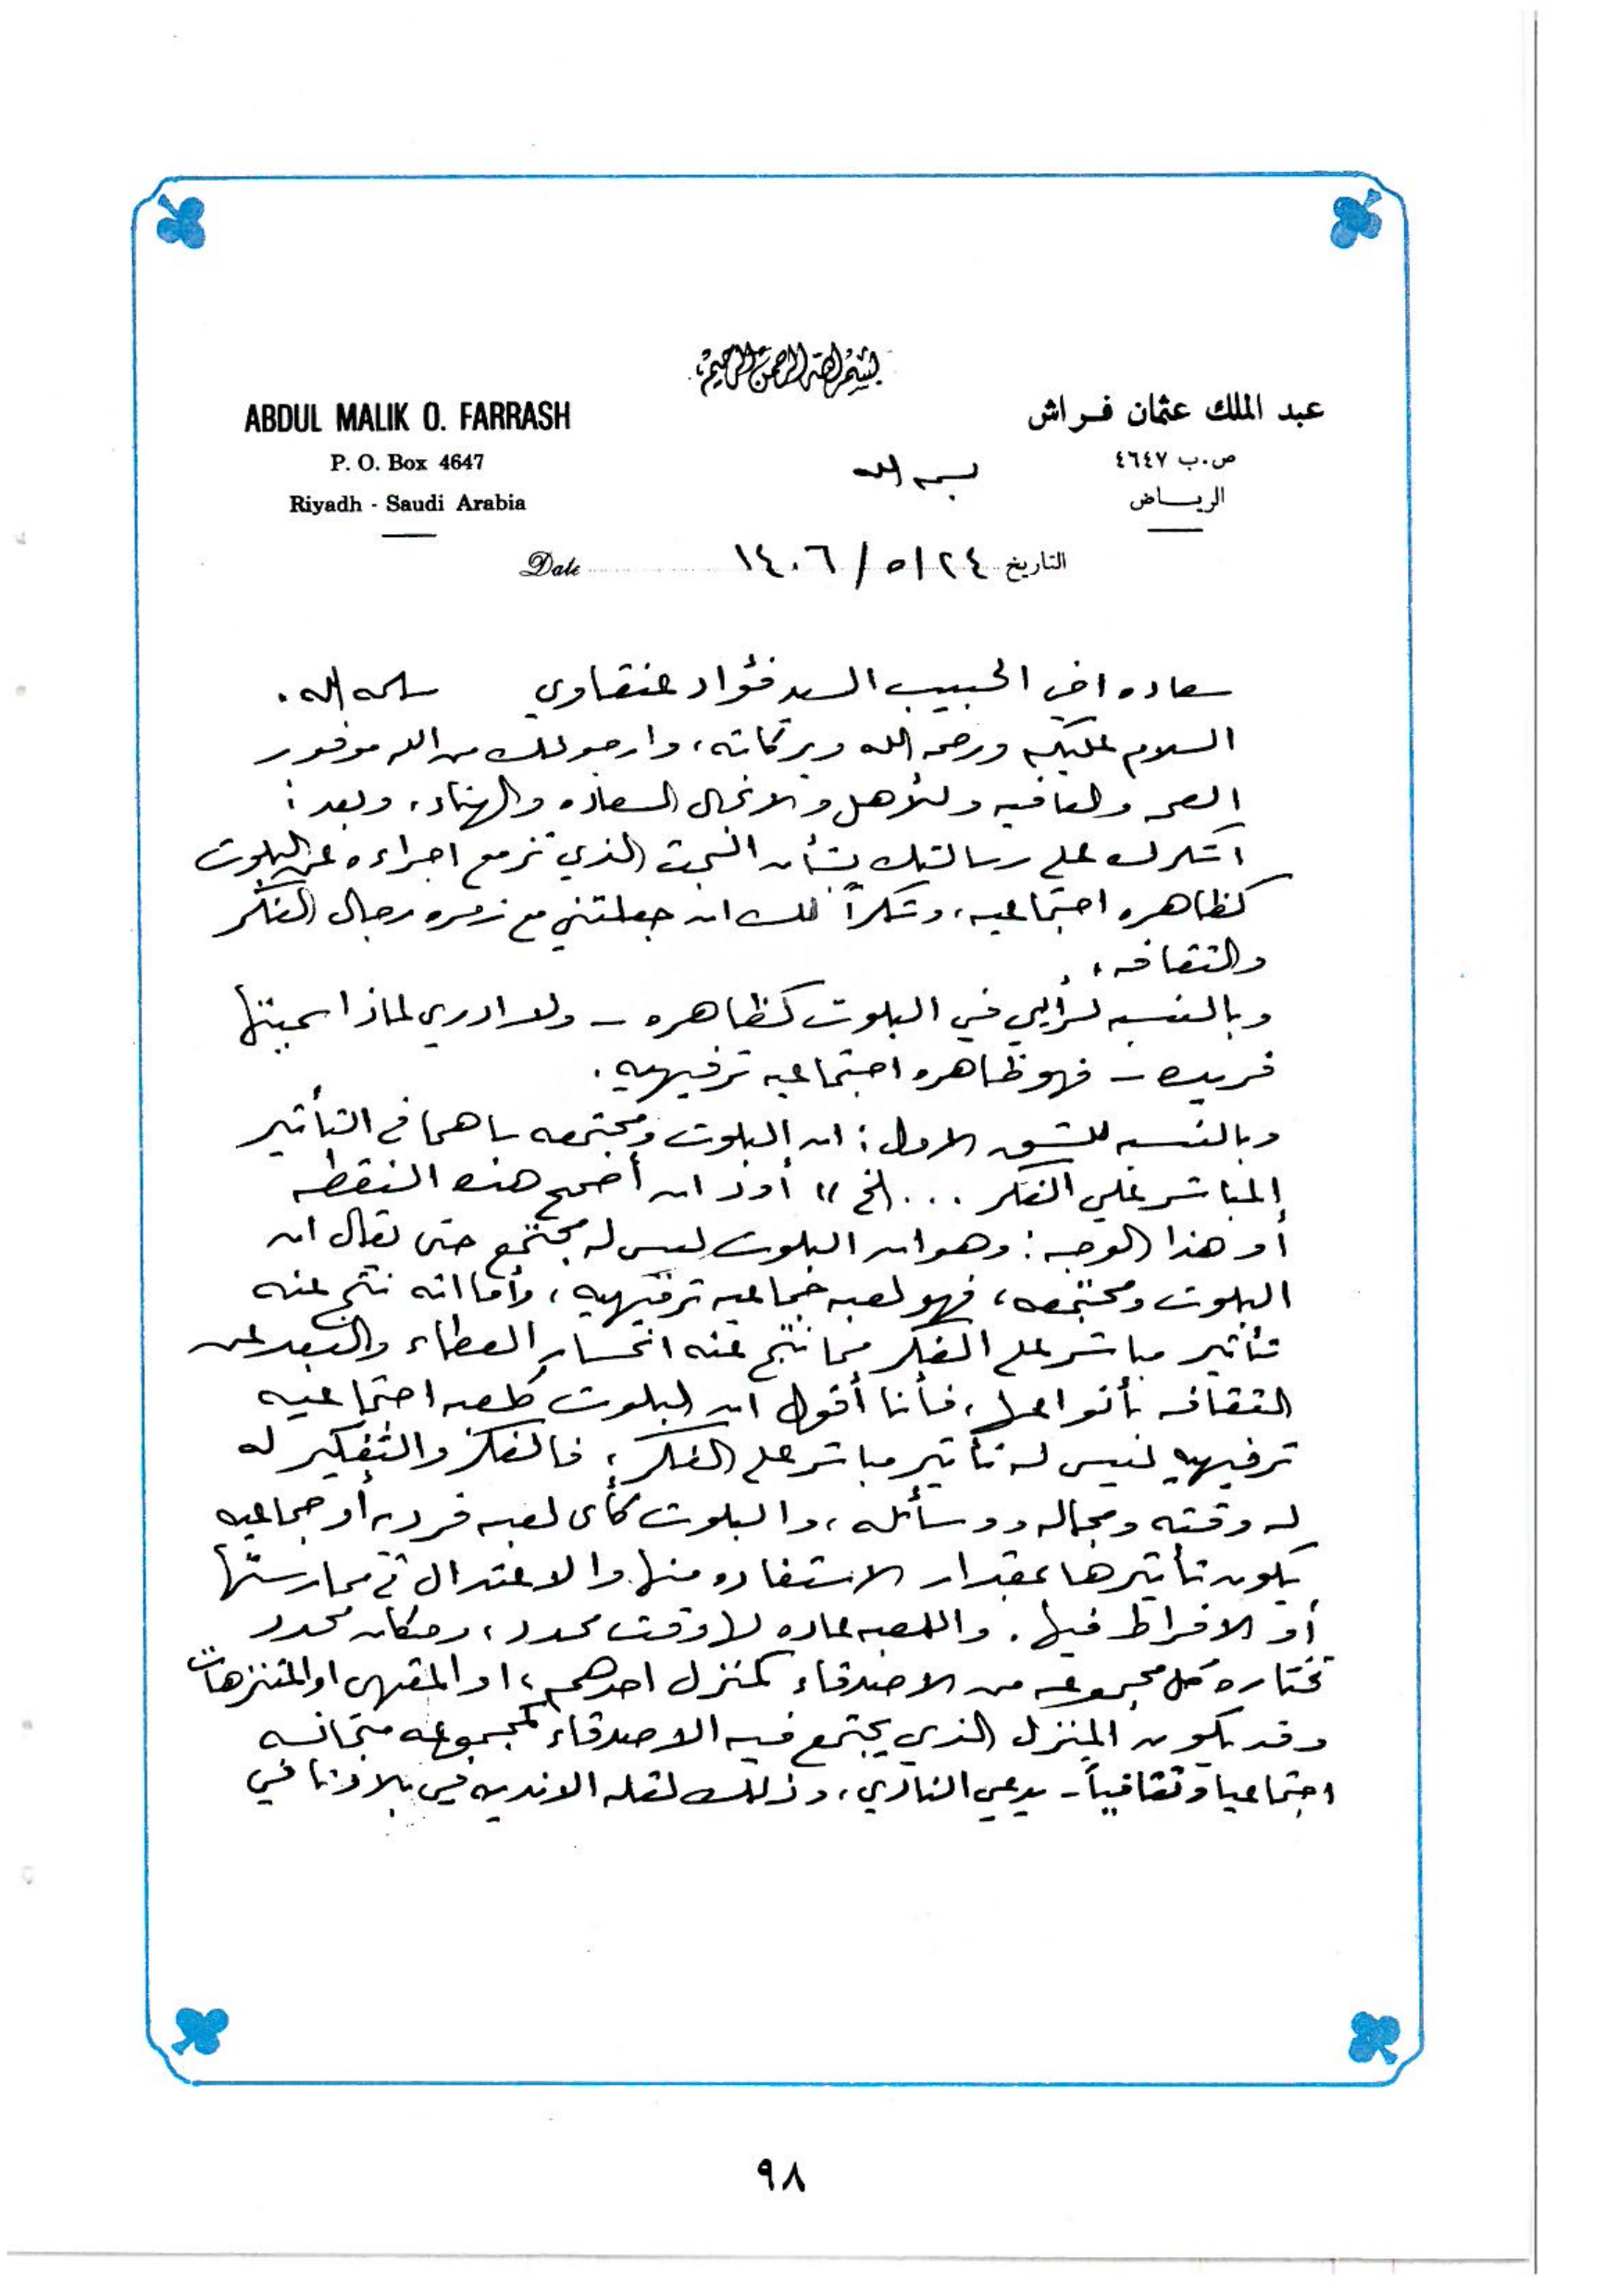 بسم الله الرحمن الرحيم
ABDUL MALIK O. FARRASH
عبد الملك عثمان فراش
P. O. Box 4647
ص.ب ٤٦٤٧
بسم الله
Riyadh - Saudi Arabia
الرياض
التاريخ ٢٤/٥/١٤٠٦ Date
سعاده اخي الحبيب السيد فؤاد عنقاوي سلمه الله.
السلام عليكم ورحمه الله وبركاته، وارجو لك من الله موفور
الصحه والعافيه وللأهل والانجال السعاده والهناء، وبعد:
اشكرك على رسالتك بشأن البحث الذي تزمع اجراءه عن البلوت
كظاهره اجتماعيه، وشكراً لك ان جعلتني مع زمره رجال الفكر
والثقافه،
وبالنسبه لرأيي في البلوت كظاهره - ولا ادري لماذا سميتها
فريده - فهو ظاهره اجتماعيه ترفيهيه.
وبالنسبه للشق الاول: ان البلوت ومجتمعه ساهما في التأثير
المباشر علي الفكر ... الخ" أود ان أصحح هذه النقطه
أو هذا الوجه: وهو ان البلوت ليس له مجتمع حتى يقال ان
البلوت ومجتمعه، فهو لعبه جماعيه ترفيهيه، وأما انه نتج عنه
تأثير مباشر على الفكر مما نتج عنه انحسار العطاء والبعد عن
الثقافه بأنواعها، فأنا أقول ان البلوت كلعبه اجتماعيه
ترفيهيه ليس له تأثير مباشر على الفكر، فالفكر والتفكير له
له وقته ومجاله ووسائله، والبلوت كأى لعبه فرديه أو جماعيه
يكون تأثيرها بمقدار الاستفاده منها والاعتدال في ممارستها
أو الافراط فيها. واللعبه عاده لها وقت محدد، ومكان محدد
تختاره كل مجموعه من الاصدقاء كمنزل احدهم، او المقهى او المتنزهات
وقد يكون المنزل الذي يجتمع فيه الاصدقاء كمجموعه متجانسه
اجتماعيا وثقافياً - يدعي النادي، وذلك لقله الانديه في بلادنا في
٩٨